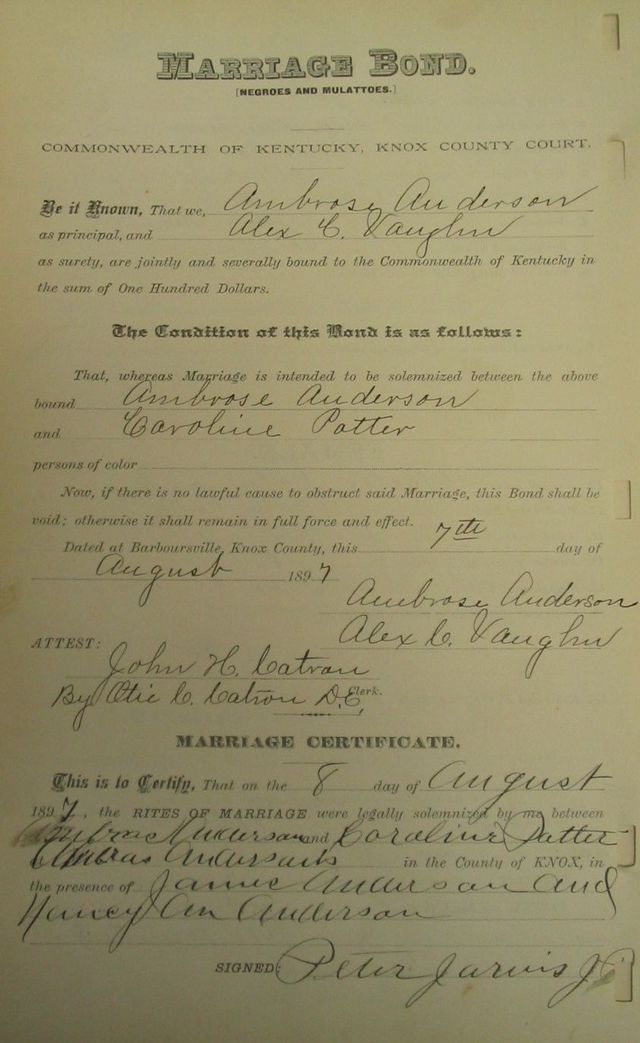 MARRIAGE BOND.
[NEGROES AND MULATTOES.]
COMMONWEALTH OF KENTUCKY, KNOX COUNTY COURT.
Be it Known, That we, Ambrose Anderson
as principal, and Alex C. Vaughn
as surety, are jointly and severally bound to the Commonwealth of Kentucky in
the sum of One Hundred Dollars.
The Condition of this Bond is as follows:
That, whereas Marriage is intended to be solemnized between the above
bound Ambrose Anderson
and Caroline Potter
persons of color
Now, if there is no lawful cause to obstruct said Marriage, this Bond shall be
void; otherwise it shall remain in full force and effect.
Dated at Barboursville, Knox County, this 7th day of
August 1897
Ambrose Anderson
Alex C. Vaughn
ATTEST:
John H. Catron
By Otie C. Catron D.C. Clerk.
MARRIAGE CERTIFICATE.
This is to Certify, That on the 8 day of August
1897, the RITES OF MARRIAGE were legally solemnized by me between
Anderson and Caroline Potter
in the County of KNOX, in
the presence of James Anderson and
Nancy An Anderson
SIGNED: Peter Jarvis